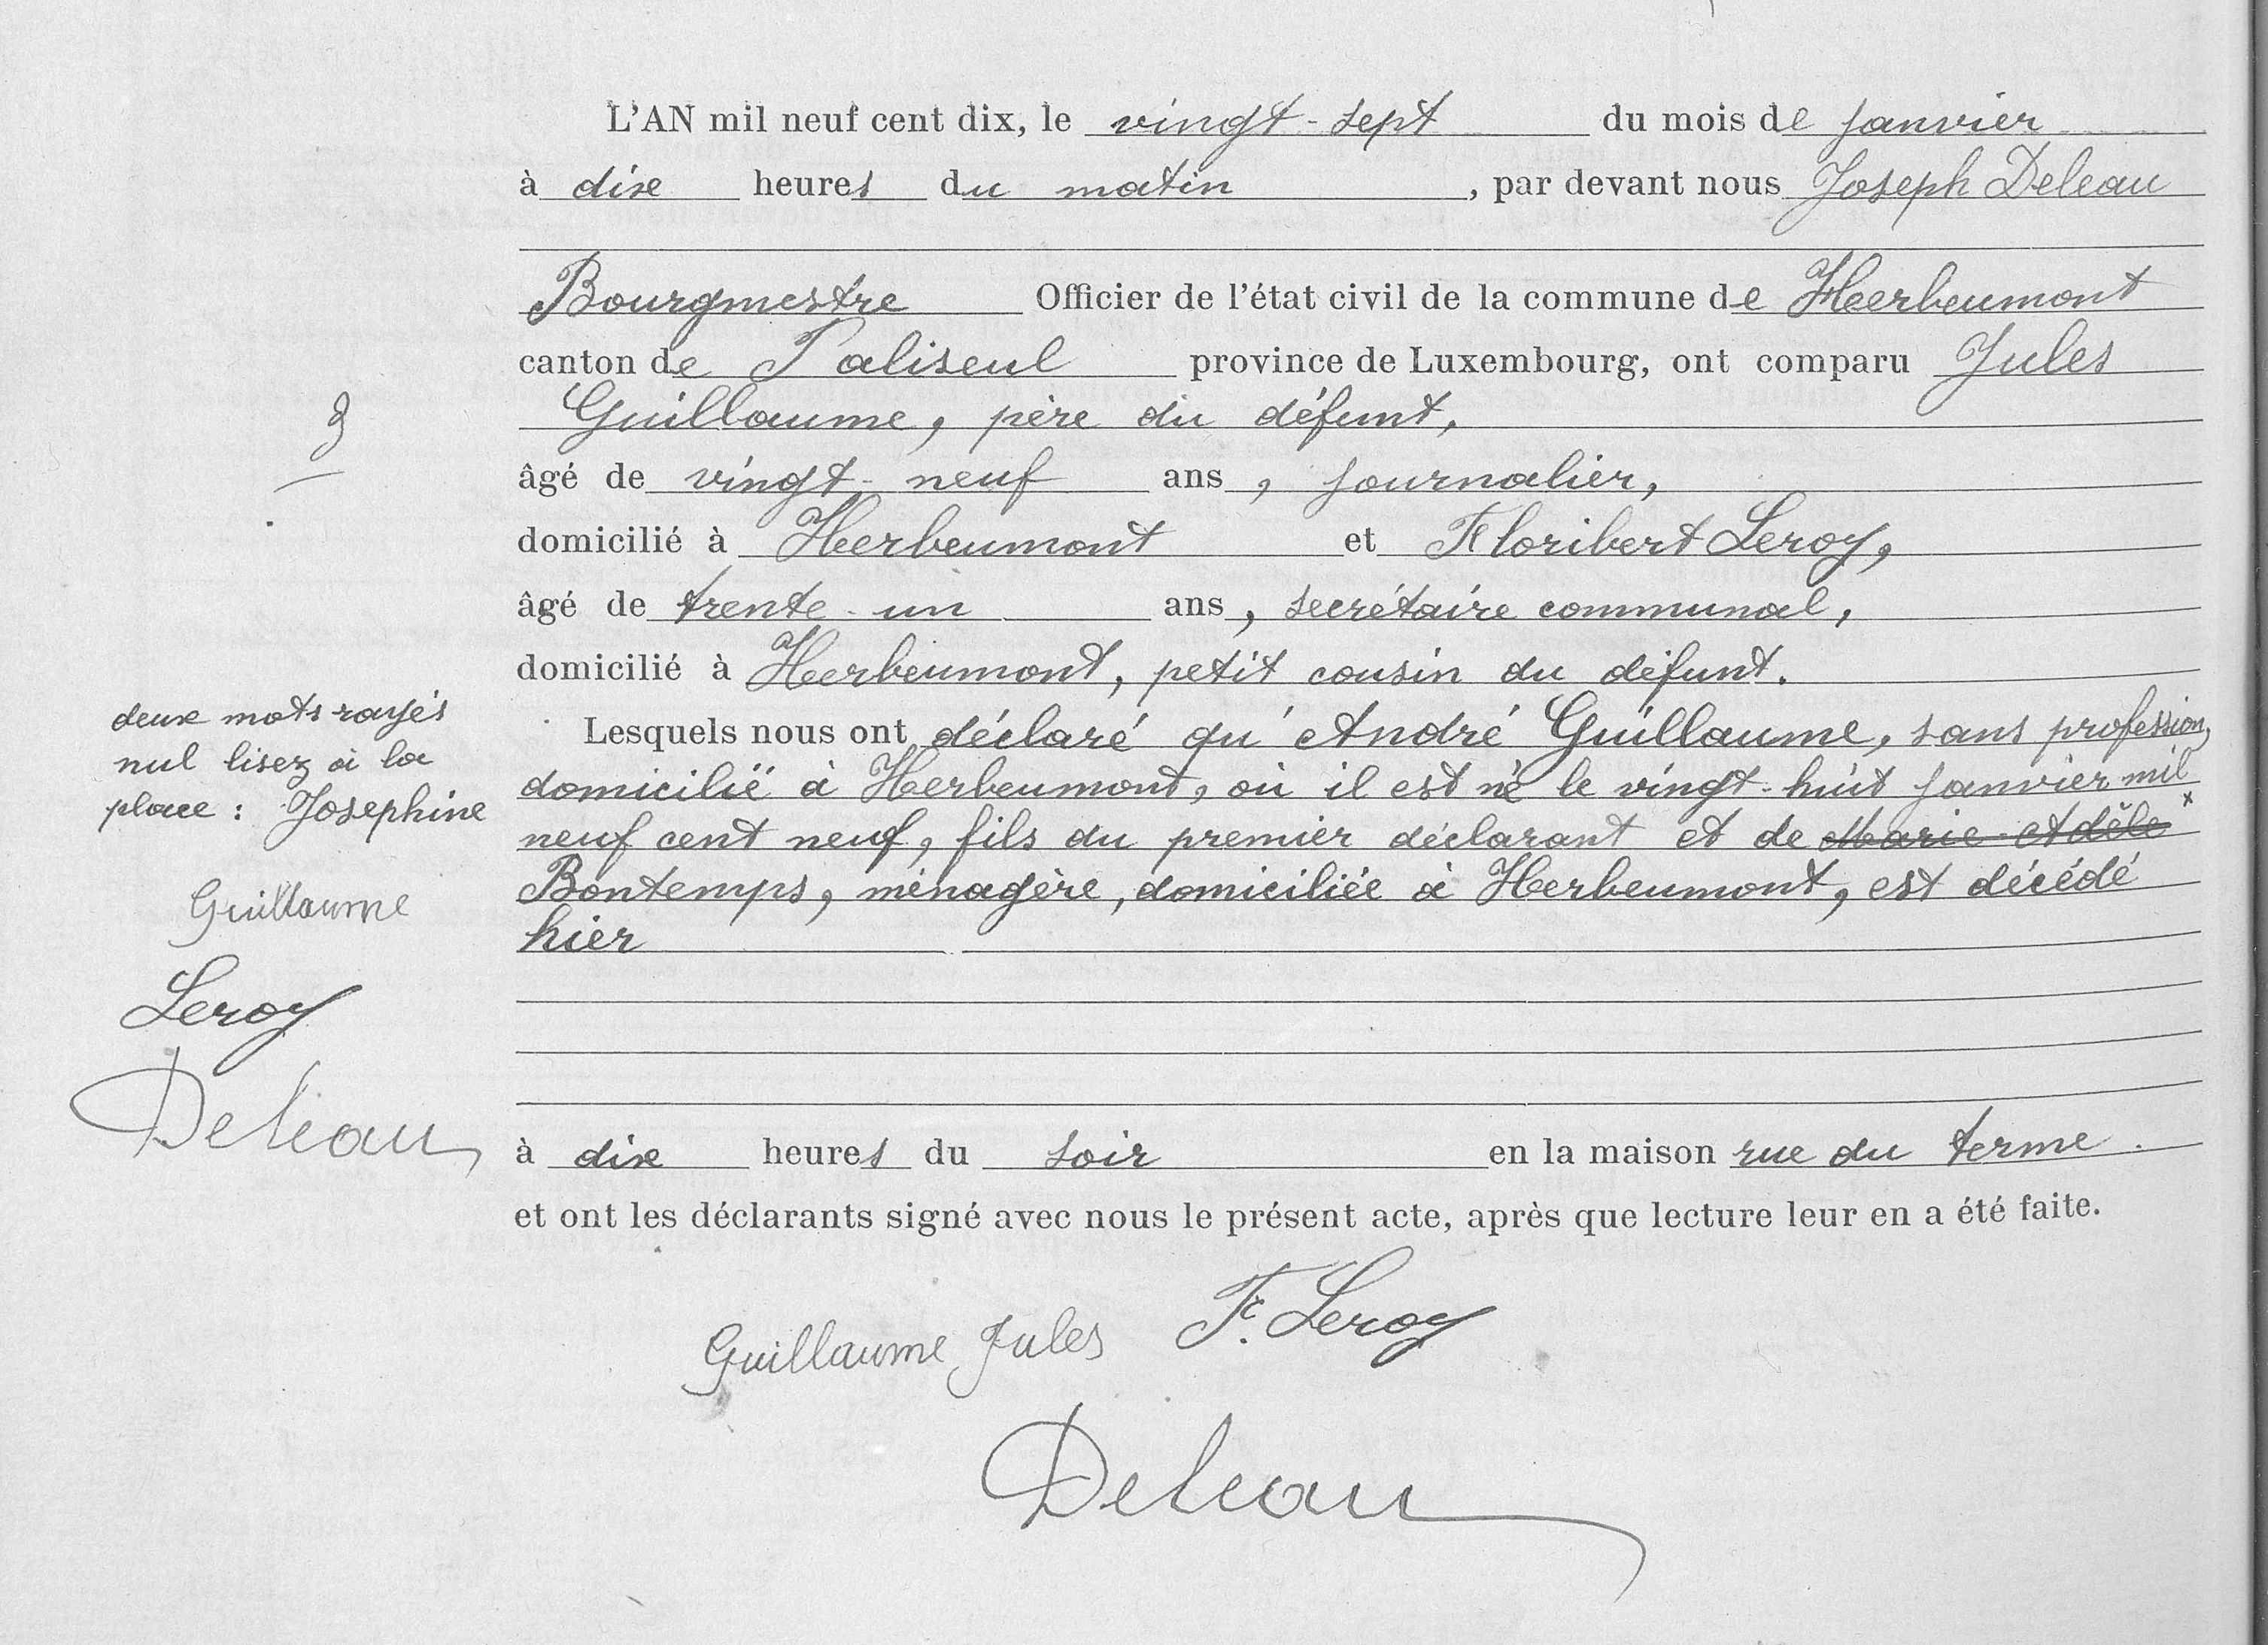 L'AN mil neuf cent dix, le vingt-sept du mois de janvier
à dix heures du matin, par devant nous Joseph Deleau
Bourgmestre Officier de l'état civil de la commune de Herbeumont
canton de Paliseul province de Luxembourg, ont comparu Jules
Guillaume, père du défunt,
3
âgé de vingt-neuf ans, journalier,
domicilié à Herbeumont et Floribert Leroy,
âgé de trente-un ans, secrétaire communal,
domicilié à Herbeumont, petit cousin du défunt.
Lesquels nous ont déclaré qu'André Guillaume, sans profession,
domicilié à Herbeumont, où il est né le vingt-huit janvier mil
neuf cent neuf, fils du premier déclarant et de Marie-Adèle x
Bontemps, ménagère, domiciliée à Herbeumont, est décédé
hier
à dix heures du soir en la maison rue du terme.
et ont les déclarants signé avec nous le présent acte, après que lecture leur en a été faite.
Guillaume Jules F. Leroy
Deleau
deux mots rayés
nul lisez à la
place : Josephine
Guillaume
Leroy
Deleau